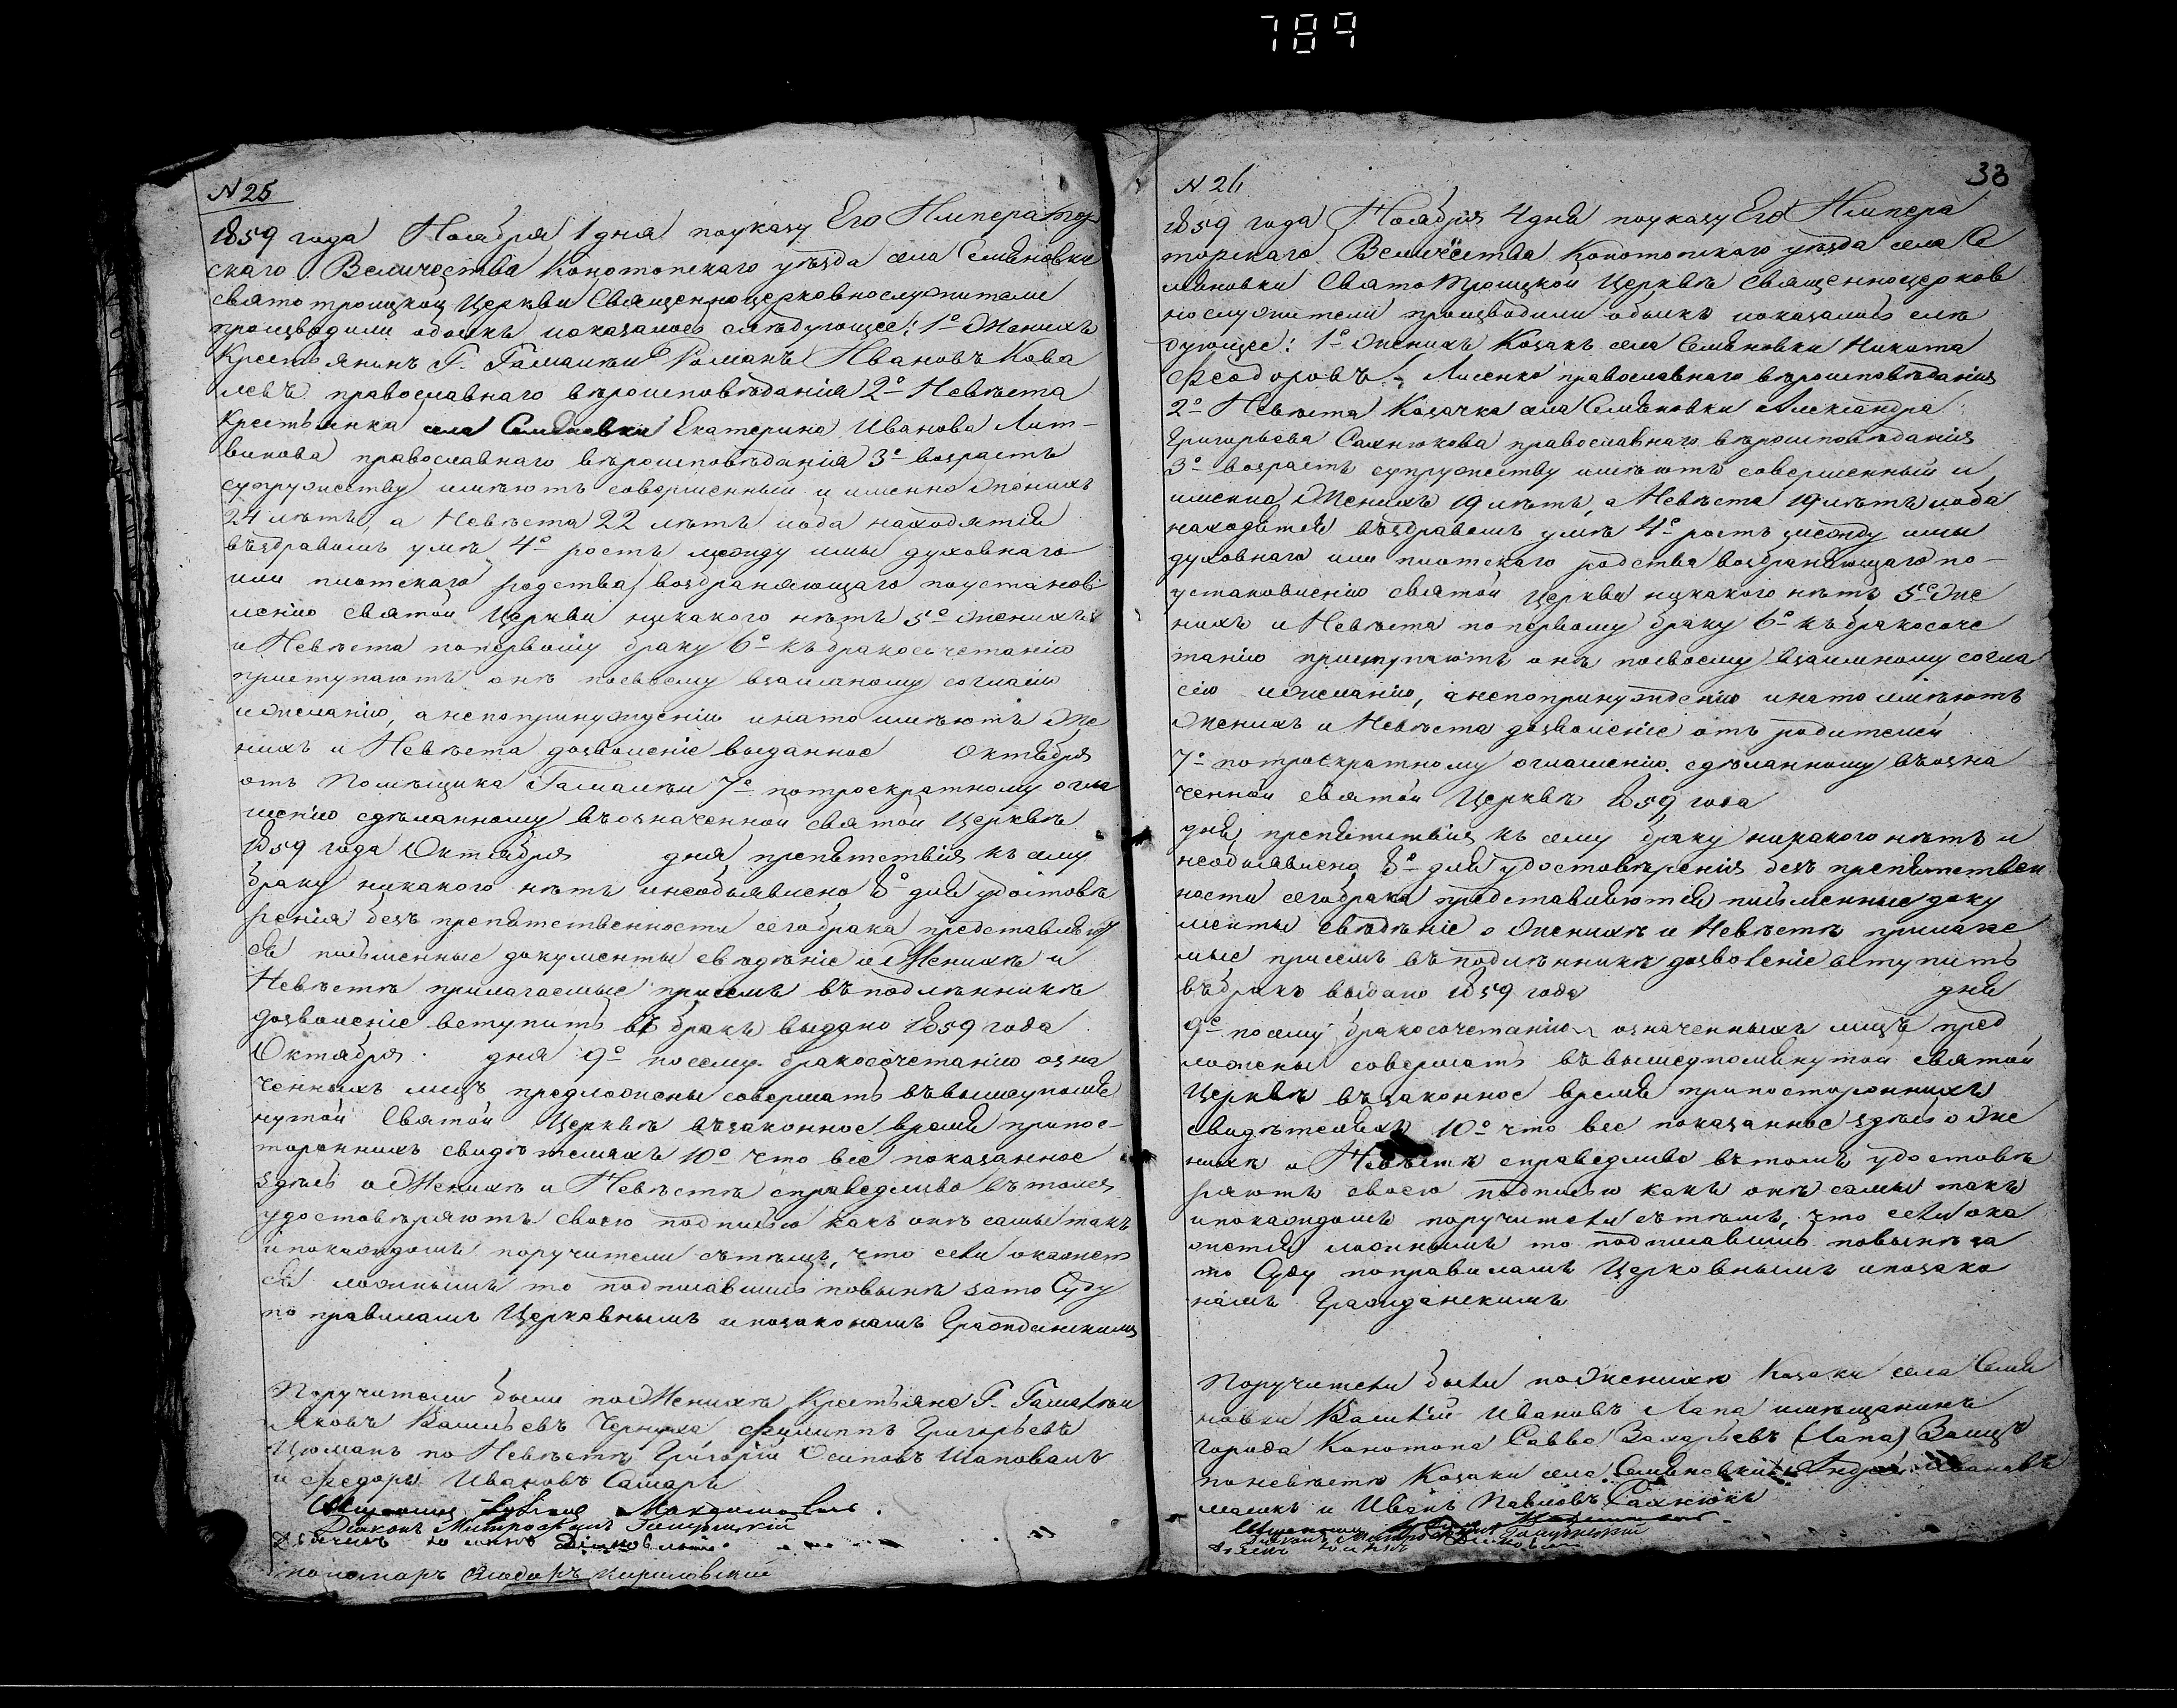 789
N 25
1859 года Ноября 1 дня поуказу Его Император
скаго Величества Конотопскаго уѣзда села Семяновки
свято троицкой Церкви Священноцерковнослужители
производили обыскъ и оказалось слѣдующее: 1º Женихъ
Крестьянинъ Г. Гамалѣи Романъ Ивановъ Кова
левъ православнаго вѣроисповѣданія 2º Невѣста
крестьянка села Семяновки Екатерина Иванова Лит-
винова православнаго вѣроисповѣданія 3º возрастъ
супружеству имѣютъ совершенный и именно Женихъ
24 лѣтъ, а Невѣста 22 лѣтъ иоба находятся
въздравомъ умѣ 4º ростъ между ими духовнаго
или плотскаго родства возбраняющаго поустанов
ленію святой Церкви никакого нѣтъ 5º Женихъ
и Невѣста попервому браку 6º къбракосочетанію
приступаютъ онѣ посвоему взаимному согласію
ижеланію, анепопринужденію инато имѣютъ Же
нихъ и Невѣста дозволеніе выданное Октября
отъ Помѣщика Гамалѣи 7º потроекратному огла
шенію сдѣланному въозначенной святой Церквѣ
1859 года Октября дня, препятствія къ сему
браку никакого нѣтъ инеобъявлено 8º для удостовѣ
ренія безъ препятственности сегобрака представляют
ся письменные документы свѣдѣніе о Женихѣ и
Невѣстѣ прилагаемые присемъ въподлѣнникѣ
дозволеніе вступить въ бракъ выдано 1859 года
Октября дня 9º посему бракосочетанію озна
ченныхъ лицъ предложены совершать въвышеупомя
нутой Святой Церквѣ взаконное время припос-
тороннихъ свидѣтеляхъ 10º что все показанное
здѣсь о Женихѣ и Невѣстѣ справедливо въ томъ
удостовѣряютъ своею подписью какъ онѣ самы такъ
ипокаждомъ поручители сътѣмъ, что если окажет
ся ложнымъ то подписавшись повыннѣ зато Суду
по правиламъ Церковнымъ ипозаконамъ Гражданскимъ
Поручители были поЖенихѣ Крестьяне Г. Гамалѣи
Яковъ Васильевъ Черныха Филиппъ Григорьевъ
Цюманъ по Невѣстѣ Григорій Осиповъ Шаповалъ
и Федоръ Ивановъ Самаръ
Діаконъ Митрофанъ
пономаръ Федоръ Кириловскій
33
N 26
1859 года Ноября 4 дня поуказу Его Импера
торскаго Величества Конотопскаго уѣзда села Се
мяновки СвятоТроицкой Церквѣ Священноцерков
нослужители производили обыскъ иоказалось слѣ
дующее: 1º Женихъ Козакъ села Семяновки Никита
Феодоровъ Лисенко православнаго вѣроисповѣданія
2º Невѣста Козачка села Семяновки Александра
Григорьева Сахнюкова православнаго вѣроисповѣданія
3º возрастъ супружеству имѣютъ совершенный и
именно Женихъ 19 лѣтъ, а Невѣста 19 лѣтъ иоба
находятся въздравомъ умѣ 4º ростъ между ими
духовнаго или плотскаго родства возбраняющаго по-
установленію святой Церкви никакого нѣтъ 5º Же
нихъ и Невѣста попервому браку 6º къбракосоче
танію приступаютъ онѣ посвоему взаимному согла
сію ижеланію, анепопринужденію инато имѣютъ
Женихъ и Невѣста дозволеніе отъ родителей
7º потроекратному оглашенію сдѣланному възна
ченной святой Церквѣ 1859 года
дня, препятствія къ сему браку никакого нѣтъ и
необъявлено 8º для удостовѣренія безъ препятствен
ности сегобрака представляются письменные доку
менты свѣдѣніе о Женихѣ и Невѣстѣ прилагае
мые присемъ въподлѣнникѣ дозволеніе вступить
въбракъ выдано 1859 года дня
9º посему бракосочетанію означенныхъ лицъ пред
ложены совершать въвышеупомянутой святой
Церквѣ взаконное время припостороннихъ
свидѣтеляхъ 10º что все показанное здѣсь о Же
нихѣ и Невѣстѣ справедливо въ томъ удостовѣ
ряютъ своею подписью какъ онѣ самы такъ
ипокаждомъ поручители сътѣмъ, что если ока
жется ложнымъ то подписавшись повыннѣ за
то Суду поправиламъ Церковнымъ ипозако
намъ Гражданскимъ
Поручители были поЖенихѣ Козаки села Семя
новки Василій Ивановъ Лапа имѣщанинъ
города Конотопа Савва Захарьевъ (Лапа) Заицъ
поневѣстѣ Козаки села Семяновки Андрей Ивановъ
и Иванъ Павловъ Сахнюкъ